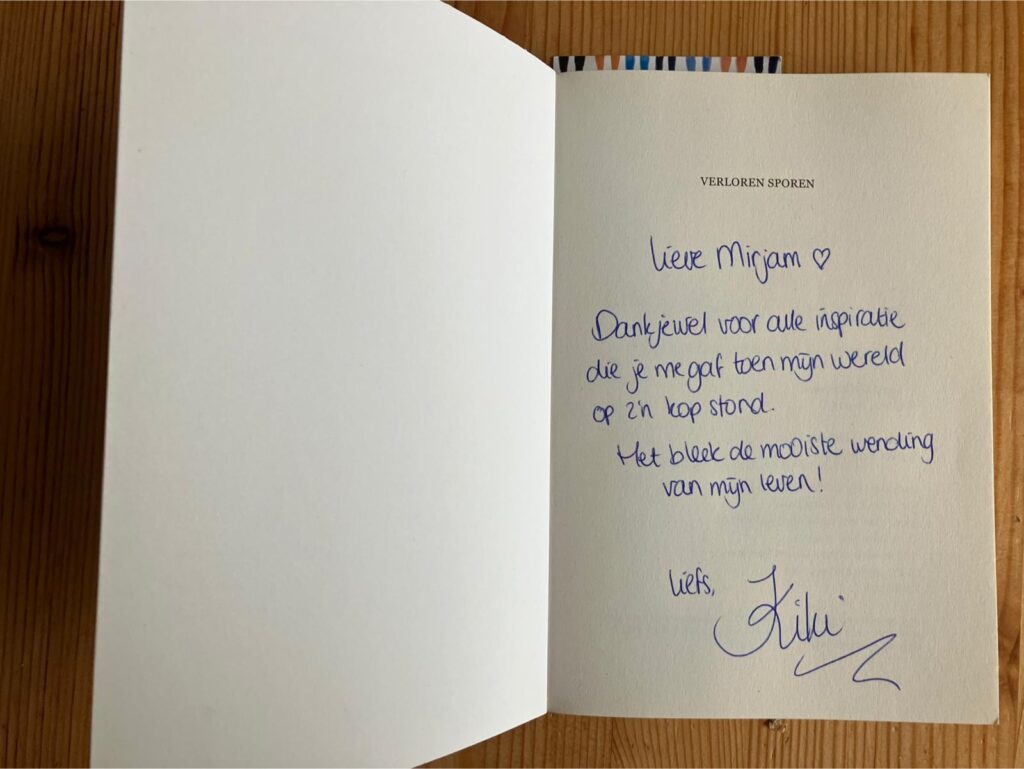 VERLOREN SPOREN
Lieve Mirjam ♡
Dankjewel voor alle inspiratie
die je me gaf toen mijn wereld
op z'n kop stond.
Het bleek de mooiste wending
van mijn leven!
Liefs,
Kiki